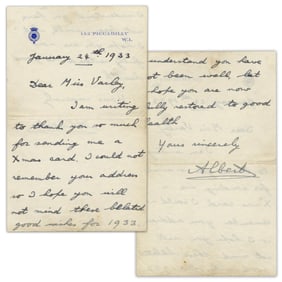 145 PICCADILLY
W.1.
January 24th 1933
Dear Miss Varley,
I am writing
to thank you so much
for sending me a
Xmas card. I could not
remember your address
so I hope you will
not mind these belated
good wishes for 1933.
understand you have
not been well, but
hope you are now
fully restored to good
health
Yours sincerely
Albert